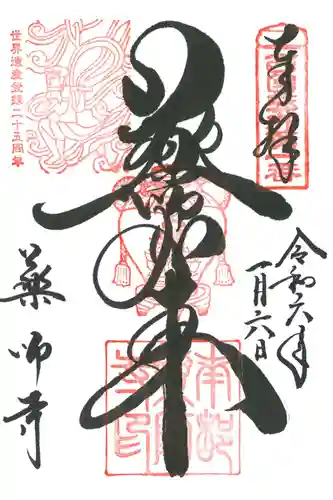 奉拝
令和六年
一月六日
薬師如来
薬師寺
世界遺産登録二十五周年